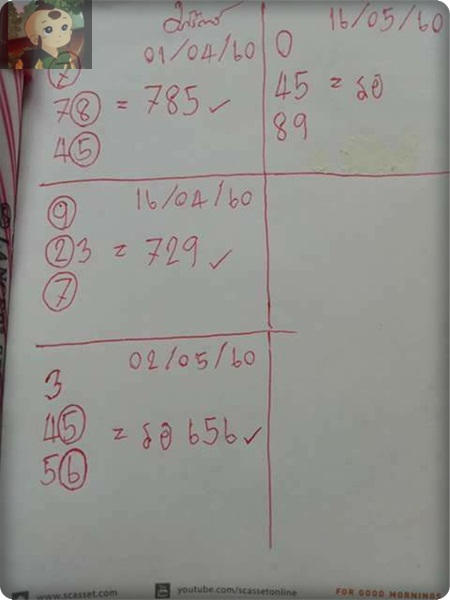 01/04/60
7
78 = 785 ✓
45
16/05/60
0
45 = รอ
89
16/04/60
9
23 = 729 ✓
7
02/05/60
3
45 = รอ 656 ✓
56
www.scasset.com
youtube.com/scassetonline
FOR GOOD MORNINGS